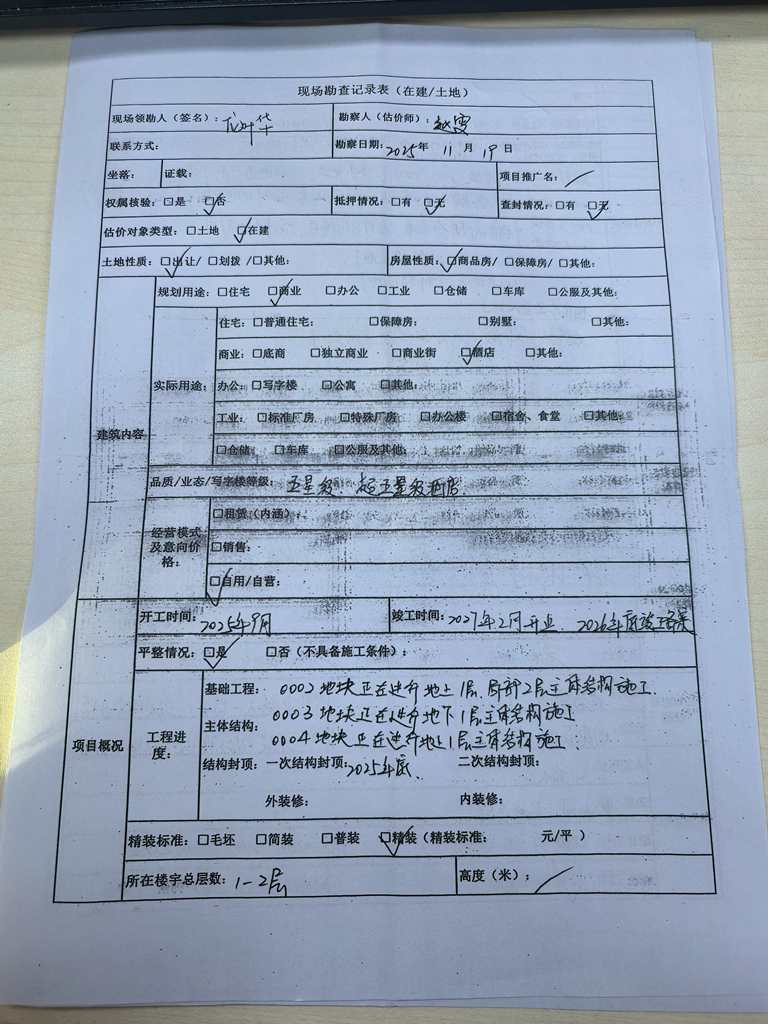 现场勘查记录表（在建/土地）
现场领勘人（签名）： 勘察人（估价师）：
联系方式： 勘察日期：2025年 11 月 19 日
坐落： 证载： 项目推广名：/
权属核验：□是 ☑否 抵押情况：□有 ☑无 查封情况：□有 ☑无
估价对象类型：□土地 ☑在建
土地性质：☑出让/ □划拨 /□其他： 房屋性质：☑商品房/ □保障房/ □其他：
建筑内容
规划用途：□住宅 ☑商业 □办公 □工业 □仓储 □车库 □公服及其他：
实际用途：
住宅：□普通住宅： □保障房： □别墅： □其他：
商业：□底商 □独立商业 □商业街 ☑酒店 □其他：
办公：□写字楼 □公寓 □其他：
工业：□标准厂房 □特殊厂房 □办公楼 □宿舍、食堂 □其他：
□仓储 □车库 □公服及其他：
品质/业态/写字楼等级：五星级、超五星级酒店.
经营模式及意向价格：
□租赁（内涵）：
□销售：
☑自用/自营：
项目概况
开工时间：2025年9月 竣工时间：2027年2月开业 2026年底竣工备案
平整情况：☑是 □否（不具备施工条件）：
工程进度：
基础工程：0002地块正在进行地上1层，局部2层主体结构施工.
主体结构：0003地块正在进行地下1层主体结构施工
0004地块正在进行地上1层主体结构施工
结构封顶：一次结构封顶：2025年底. 二次结构封顶：
外装修： 内装修：
精装标准：□毛坯 □简装 □普装 ☑精装（精装标准： 元/平 ）
所在楼宇总层数：1-2层 高度（米）：/